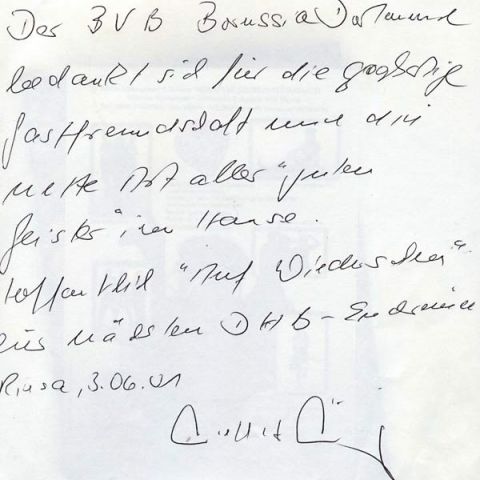 Der BVB Borussia Dortmund
bedankt sich für die großartige
Gastfreundschaft und die
nette Art aller "guten
Geister" im Hause.
Hoffentlich "Auf Wiedersehen"
nächsten DHB-
Riesa, 3.06.01